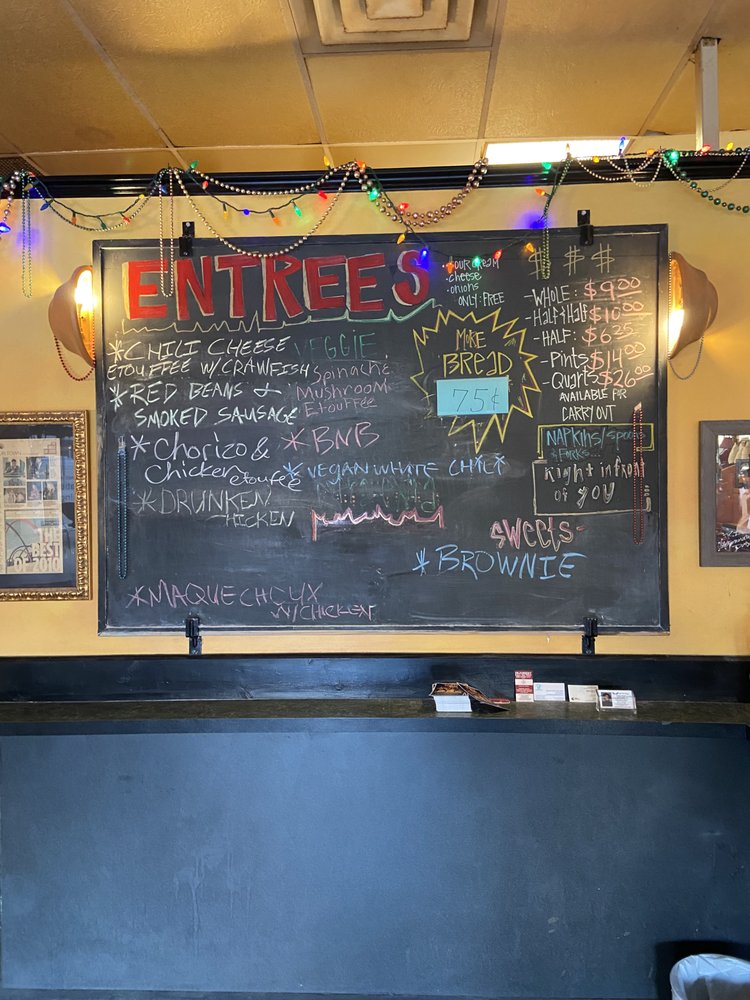 ENTREES
*CHILI CHEESE
ETOUFFEE W/CRAWFISH
*RED BEANS &
SMOKED SAUSAGE
*Chorizo &
Chicken etouffee
*DRUNKEN
*MAQUE CHOUX
W/CHICKEN
VEGGIE
Spinach &
Mushroom
Etouffee
*BNB
*VEGAN WHITE CHILI
·SOUR CREAM
·cheese
·onions
ONLY: FREE
MORE
BREAD
75¢
SWEETS-
*BROWNIE
$ $ $
-WHOLE: $9.00
-HALF&HALF $10.00
-HALF: $6.25
-Pints $14.00
-Quarts $26.00
AVAILABLE FOR
CARRY OUT
NAPKINS/Spoons
& FORKS...
Right in front
of you
THE
BEST
OF 2010